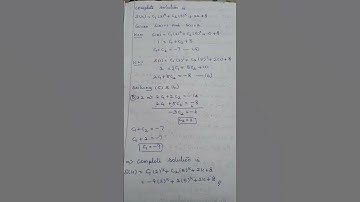 Complete solution is
S(n) = C₁(2)ⁿ + C₂(5)ⁿ + 2n + 8
Given S(0)=1 and S(1)=2
n=0 S(0) = C₁(2)⁰ + C₂(5)⁰ + 0 + 8
1 = C₁ + C₂ + 8
C₁ + C₂ = -7
n=1 S(1) = C₁(2)¹ + C₂(5)¹ + 2(1) + 8
2 = 2C₁ + 5C₂ + 10
2C₁ + 5C₂ = -8
Solving
x2 ⇒ 2C₁ + 2C₂ = -14
2C₁ + 5C₂ = -8
-3C₂ = -6
C₂ = 2
C₁ + C₂ = -7
C₁ + 2 = -7
C₁ = -9
⇒ Complete solution is
S(n) = C₁(2)ⁿ + C₂(5)ⁿ + 2n + 8
= -9(2)ⁿ + 2(5)ⁿ + 2n + 8